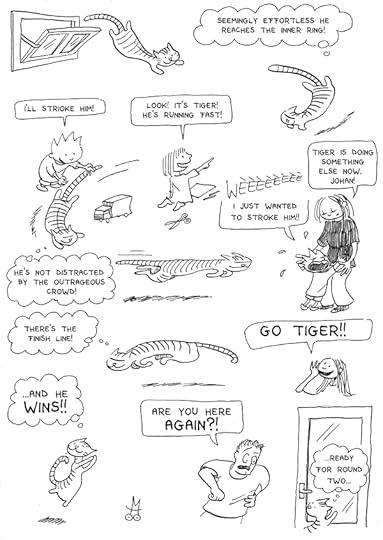 SEEMINGLY EFFORTLESS HE
REACHES THE INNER RING!
I'LL STRIOKE HIM!
LOOK! IT'S TIGER!
HE'S RUNNING FAST!
TIGER IS DOING
SOMETHING
ELSE NOW,
JOHAN!
WEEEEEEEEEE
I JUST WANTED
TO STROKE HIM!!
HE'S NOT DISTRACTED
BY THE OUTRAGEOUS
CROWD!
THERE'S THE
FINISH LINE!
GO TIGER!!
...AND HE
WINS!!
ARE YOU HERE
AGAIN?!
...READY
FOR ROUND
TWO...